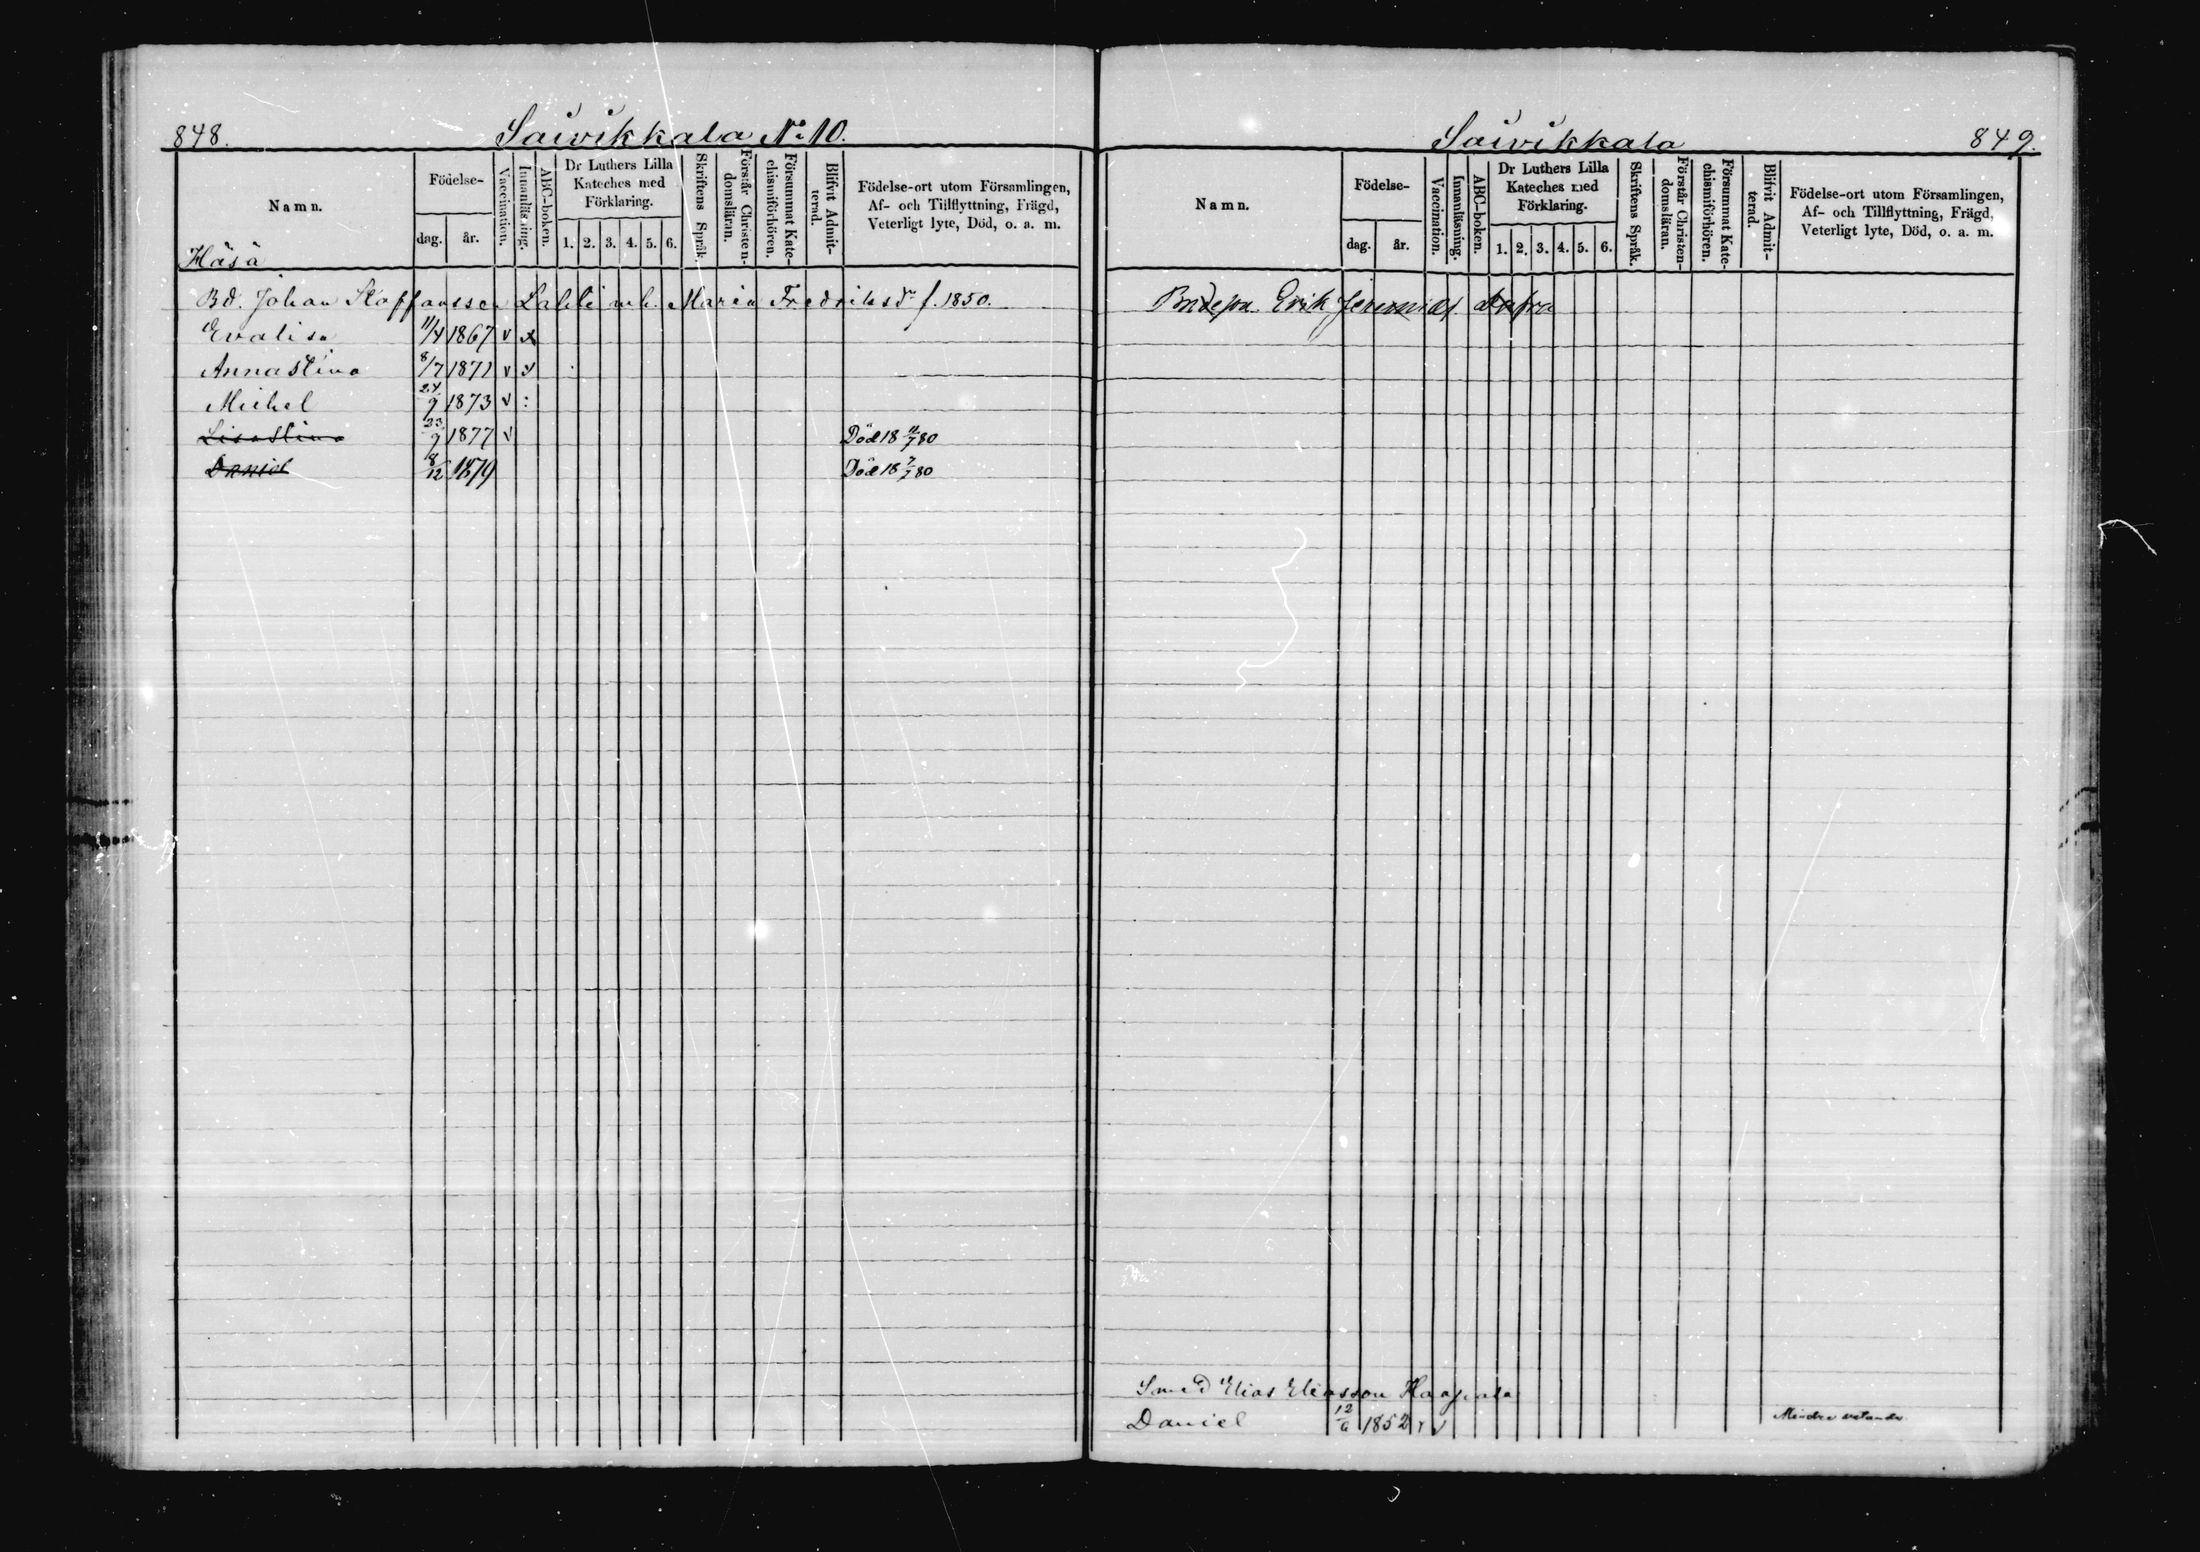 848.
Saivikkala No 10.
Namn.
Födelse-
dag.
år.
Vaccination.
Innanläsning.
ABC-boken.
Dr Luthers Lilla
Kateches med
Förklaring.
1. 2. 3. 4. 5. 6.
Skriftens Språk.
Förstår Christen-
domsläran.
Försummat Kate-
chismiförhören.
Blifvit Admit-
terad.
Födelse-ort utom Församlingen,
Af- och Tillflyttning, Frägd,
Veterligt lyte, Död, o. a. m.
Häsä
Bd. Johan Staffansson Lahti m.h. Maria Fredriksdr f. 1850.
Evalisa 11/4 1867 v x
Annastina 8/7 1871 v v
Michel 24/9 1873 v :
Lisastina 23/9 1877 v Död 18 11/7 80
Daniel 8/12 1879 Död 18 7/7 80
Saivikkala
849.
Namn.
Födelse-
dag.
år.
Vaccination.
Innanläsning.
ABC-boken.
Dr Luthers Lilla
Kateches med
Förklaring.
1. 2. 3. 4. 5. 6.
Skriftens Språk.
Förstår Christen-
domsläran.
Försummat Kate-
chismiförhören.
Blifvit Admit-
terad.
Födelse-ort utom Församlingen,
Af- och Tillflyttning, Frägd,
Veterligt lyte, Död, o. a. m.
Erik
Smed Elias Eliasson Haapala
Daniel 12/6 1852 v v Mindre vetande